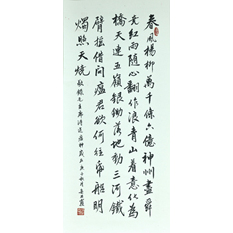 春風楊柳萬千條六億神州盡舜
尧红雨随心翻作浪青山着意化為
橋天連五嶺銀鋤落地動三河鐵
臂搖借問瘟君欲何往纸船明
燭照天燒 敬錄毛主席詩送瘟神